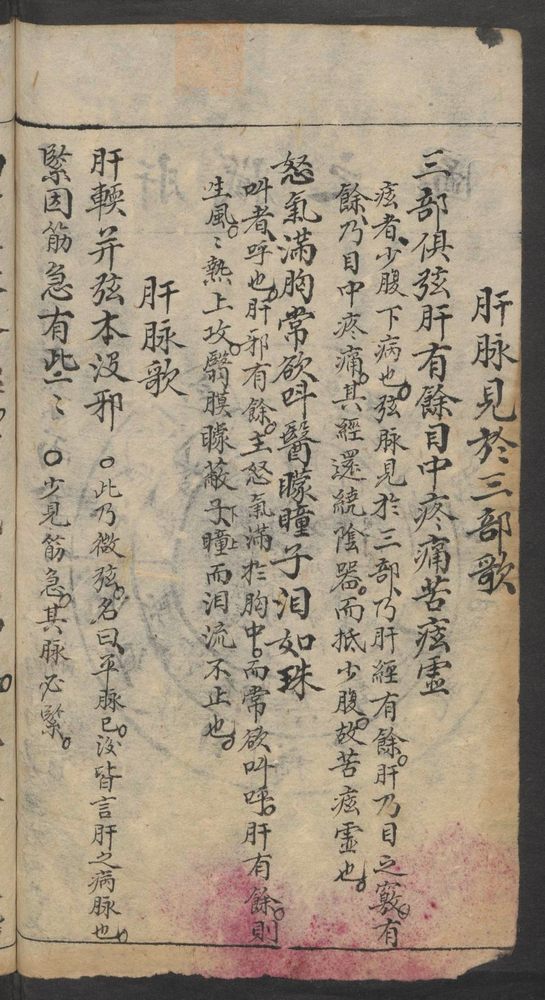 肝脉見於三部歌
三部俱弦肝有餘目中疼痛苦痃虚
痃者少腹下病也弦脉見於三部乃肝經有餘肝乃目之竅有
餘乃目中疼痛其經還繞陰器而抵少腹故苦痃虚也
怒氣滿胸常欲叫翳矇瞳子泪如珠
叫者呼也肝邪有餘主怒氣滿於胸中而常欲叫呼肝有餘則
生風〻熱上攻翳膜矇蔽子瞳而泪流不止也
肝脉歌
肝輭并弦本没邪 ○此乃微弦名曰平脉已後皆言肝之病脉也
緊因筋急有些〻 ○少見筋急其脉必緊